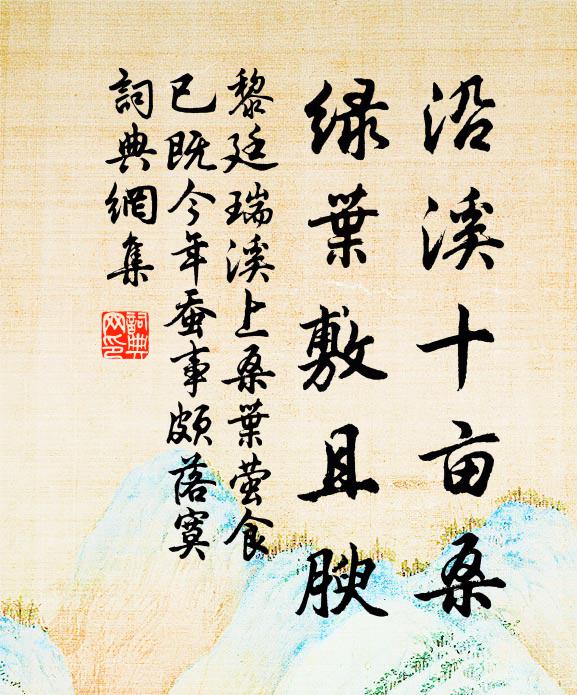 沿溪十亩桑
绿葉敷且腴
黎廷瑞溪上桑葉蛍食
已既今年蚕事頗落寞
詞典網集
詞典
网印